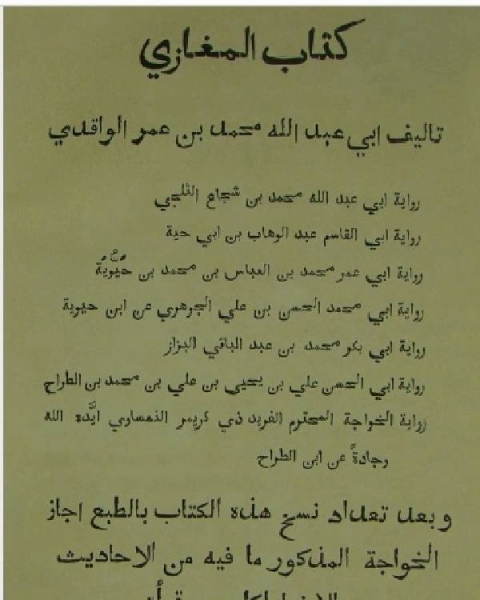 كتاب المغازي
تاليف ابي عبد الله محمد بن عمر الواقدي
رواية ابي عبد الله محمد بن شجاع الثلجي
رواية ابي القاسم عبد الوهاب بن ابي حية
رواية ابي عمر محمد بن العباس بن محمد بن حيوية
رواية ابي محمد الحسن بن علي الجوهري عن ابن حيوية
رواية ابي بكر محمد بن عبد الباقي البزاز
رواية ابي الحسن علي بن يحيى بن علي بن محمد بن الطراح
رواية الخواجة المحترم الفريد ذي كريمر النمساري ايّده الله
وجادةً عن ابن الطراح
و بعد تعداد نسخ هذه الكتاب بالطبع اجاز
الخواجة المذكور ما فيه من الاحاديث